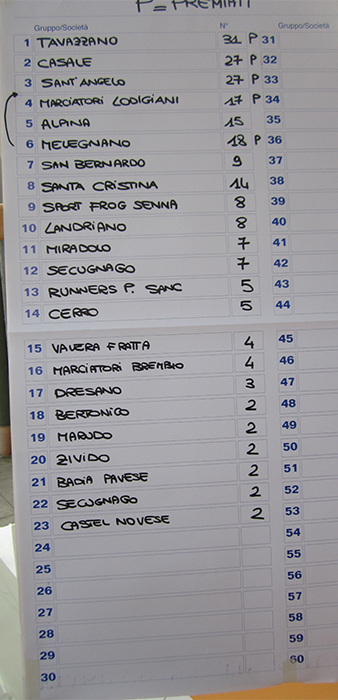 P = PREMIATI
Gruppo/Società N° Gruppo/Società
1 TAVAZZANO 31 P 31
2 CASALE 27 P 32
3 SANT'ANGELO 27 P 33
4 MARCIATORI LODIGIANI 17 P 34
5 ALPINA 15 35
6 MELEGNANO 18 P 36
7 SAN BERNARDO 9 37
8 SANTA CRISTINA 14 38
9 SPORT FROG SENNA 8 39
10 LANDRIANO 8 40
11 MIRADOLO 7 41
12 SECUGNAGO 7 42
13 RUNNERS P. SANC 5 43
14 CERRO 5 44
15 VALERA FRATTA 4 45
16 MARCIATORI BREMBIO 4 46
17 DRESANO 3 47
18 BERTONICO 2 48
19 MARUDO 2 49
20 ZIVIDO 2 50
21 BADIA PAVESE 2 51
22 SECUGNAGO 2 52
23 CASTEL NOVESE 2 53
24 54
25 55
26 56
27 57
28 58
29 59
30 60